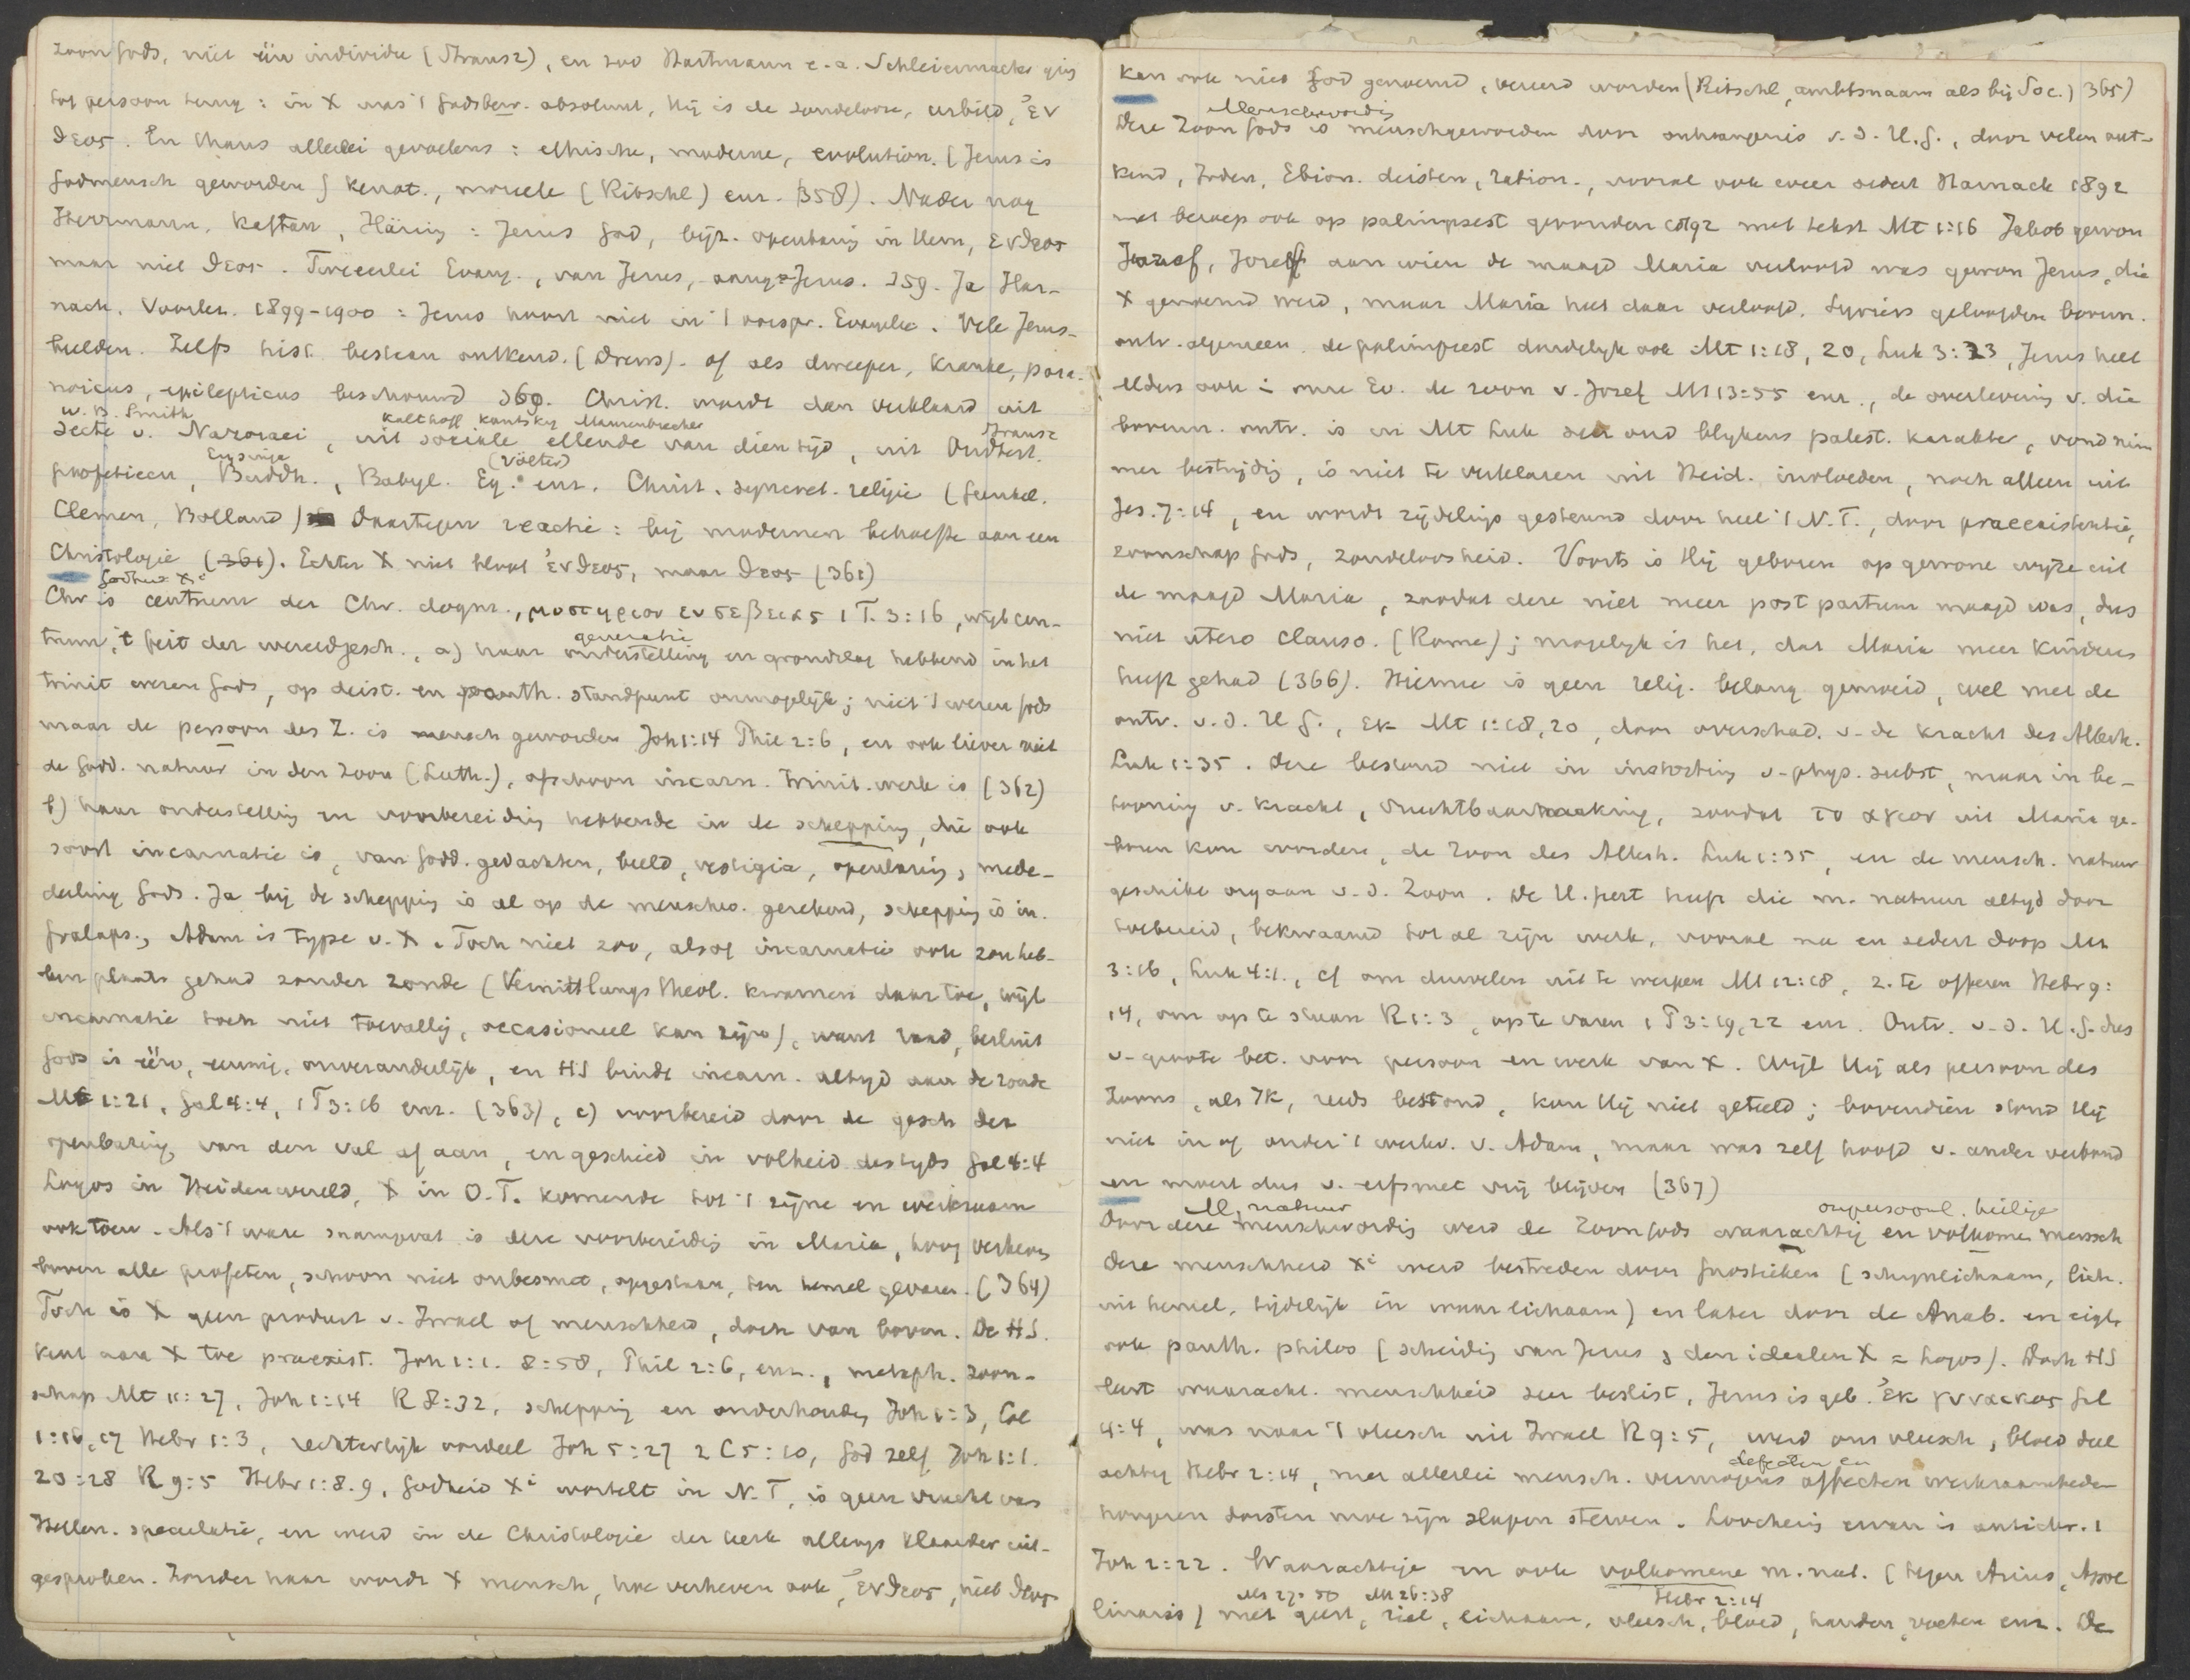 Zoon Gods, niet één individu (Strausz), en zoo Hartmann e.a. Schleiermacher ging
tot persoon terug: in X was 't Godsbew. absoluut, Hij is de zondelooze, urbild, ἐν
θεος. En thans allerlei gevoelens: ethische, moderne, evolution. (Jezus is
Godmensch geworden) kenot., moreele (Ritschl) enz. 358). Nader nog
Herrmann, Kaftan, Häring: Jezus God, bijz. openbaring in Hem, ενθεος
maar niet θεος. Tweeërlei Evang., van Jezus, aang. Jezus. 359. Ja Har-
nack. Voorles. 1899-1900: Jezus hoort niet in 't oorspr. Evangelie. Vele Jezus-
beelden. Zelfs hist. bestaan ontkend. (Drews). of als dweeper, kranke, para-
noicus, epilepticus beschouwd 360. Christ. wordt dan verklaard uit
W. B. Smith Kalthoff Kautsky Maurenbrecher Strausz
secte v. Nazoraei, uit sociale ellende van dien tijd, uit Oudtest.
Eysinga (Völter)
profetieen, Buddh., Babyl. Eg. enz. Christ. syncret. religie (Gunkel.
Clemen, Bolland) Daartegen reactie: bij modernen behoefte aan een
Christologie (361). Echter X niet bloot ἐνθεος, maar θεος (361)
Godheid Xi
Chr is centrum der Chr. dogm., μυστηριον ευσεβειας 1 T. 3:16, wijl cen-
generatie
trum, 't feit der wereldgesch., a) haar onderstelling en grondslag hebbend in het
trinit wezen Gods, op deist. en panth. standpunt onmogelijk; niet 't wezen Gods
maar de persoon des Z. is mensch geworden Joh 1:14 Phil 2:6, en ook liever niet
de Godd. natuur in den Zoon (Luth.), ofschoon incarn. trinit. werk is (362)
b) haar onderstelling en voorbereiding hebbende in de schepping, die ook
soort incarnatie is, van Godd. gedachten, beeld, vestigia, openbaring, mede-
deeling Gods. Ja bij de schepping is al op de menschw. gerekend, schepping is in-
fralaps., Adam is type v. X. Toch niet zoo, alsof incarnatie ook zou heb-
ben plaats gehad zonder zonde (Vermittlungs theol. kwamen daar toe, wijl
incarnatie toch niet toevallig, occasioneel kan zijn), want raad, besluit
Gods is één, eeuwig, onveranderlijk, en HS bindt incarn. altijd aan de zonde
Mt 1:21, Gal 4:4, 1 T 3:16 enz. (363), c) voorbereid door de gesch der
openbaring van den val af aan, en geschied in volheid des tijds Gal 4:4
Logos in Heidenwereld, X in O.T. komende tot 't zijne en werkzaam
ook toen. Als 't ware samengevat is deze voorbereiding in Maria, hoog verheven
boven alle profeten, schoon niet onbesmet, opgestaan, ten hemel gevaren. (364)
Toch is X geen product v. Israel of menschheid, doch van boven. De HS.
kent aan X toe praeexist. Joh 1:1. 8:58, Phil 2:6, enz., metaph. zoon-
schap Mt 11:27, Joh 1:14 R 8:32, schepping en onderhouding Joh 1:3, Col
1:16,17 Hebr 1:3, rechterlijk oordeel Joh 5:27 2 C 5:10, God zelf Joh 1:1.
20:28 R 9:5 Hebr 1:8.9, Godheid Xi wortelt in N.T, is geen vrucht van
Hellen. speculatie, en werd in de Christologie der kerk allengs klaarder uit-
gesproken. Zonder haar wordt X mensch, hoe verheven ook, ἐνθεος, niet θεος
kan ook niet God genoemd, vereerd worden (Ritschl, ambtsnaam als bij Soc.) 365)
Menschwording
Deze Zoon Gods is menschgeworden door ontvangenis v. d. H. G., door velen ont-
kend, Joden, Ebion. deisten, ration., vooral ook weer sedert Harnack 1892
met beroep ook op palimpsest gevonden 1892 met tekst Mt 1:16 Jakob gewon
Jozef, Jozef aan wien de maagd Maria verloofd was gewon Jezus, die
X genoemd werd, maar Maria heet daar verloofd. Syriers geloofden bovenn.
ontv. algemeen. de palimpsest duidelijk ook Mt 1:18, 20, Luk 3:23, Jezus heet
elders ook in onze Ev. de zoon v. Jozef Mt 13:55 enz., de overlevering v. die
bovenn. ontv. is in Mt Luk zeer oud blijkens palest. karakter, vond nim
mer bestrijding, is niet te verklaren uit Heid. invloeden, noch alleen uit
Jes. 7:14, en wordt zijdelings gesteund door heel 't N.T., door praeexistentie,
zoonschap Gods, zondeloosheid. Voorts is Hij geboren op gewone wijze uit
de maagd Maria, zoodat deze niet meer post partum maagd was, dus
niet utero clauso. (Rome); mogelijk is het, dat Maria meer kinderen
heeft gehad (366). Hierme is geen relig. belang gemoeid, wel met de
ontv. v. d. H G., εκ Mt 1:18,20, door overschad. v. de kracht des Allerh.
Luk 1:35. Deze bestond niet in instorting v. phys. subst, maar in be-
tooning v. kracht, vruchtbaarmaking, zoodat το αγιον uit Maria ge-
boren kon worden, de Zoon des Allerh. Luk 1:35, en de mensch. natuur
geschikt orgaan v. d. Zoon. De H. Geest heeft die m. natuur altijd door
toebereid, bekwaamd tot al zijn werk, vooral na en sedert doop Mt
3:16, Luk 4:1., cf om duivelen uit te werpen Mt 12:18, z. te offeren Hebr 9:
14, om op te staan R 1:3, op te varen 1 P 3:19,22 enz. Ontv. v. d. H. G. dus
v. groote bet. voor persoon en werk van X. Wijl Hij als persoon des
Zoons, als Ik, reeds bestond, kon Hij niet geteeld; bovendien stond Hij
niet in of onder 't werkv. v. Adam, maar was zelf hoofd v. ander verbond
en moest dus v. erfsmet vrij blijven (367)
M. natuur onpersoonl. heilige
Door deze menschwording werd de Zoon Gods waarachtig en volkomen mensch
Deze menschheid Xi werd bestreden door Gnostieken (schijnlichaam, lich.
uit hemel, tijdelijk in waar lichaam) en later door de Anab. en eigl.
ook panth. philos (scheiding van Jezus & den idealen X = Logos). Doch HS
leert waaracht. menschheid zeer beslist, Jezus is geb. ἐκ γυναικος Gal
4:4, was naar 't vleesch uit Israel R 9:5, werd ons vleesch, bloed deel
defecten en
achtig Hebr 2:14, met allerlei mensch. vermogens affecten werkzaamheden
hongeren dorsten moe zijn slapen sterven. Loochening ervan is antichr. 1
Joh 2:22. Waarachtige en ook volkomene m. nat. (tegen Arius, Apol
Mt 27:50 Mt 26:38 Hebr 2:14
linaris) met geest, ziel, lichaam, vleesch, bloed, handen, voeten enz. De